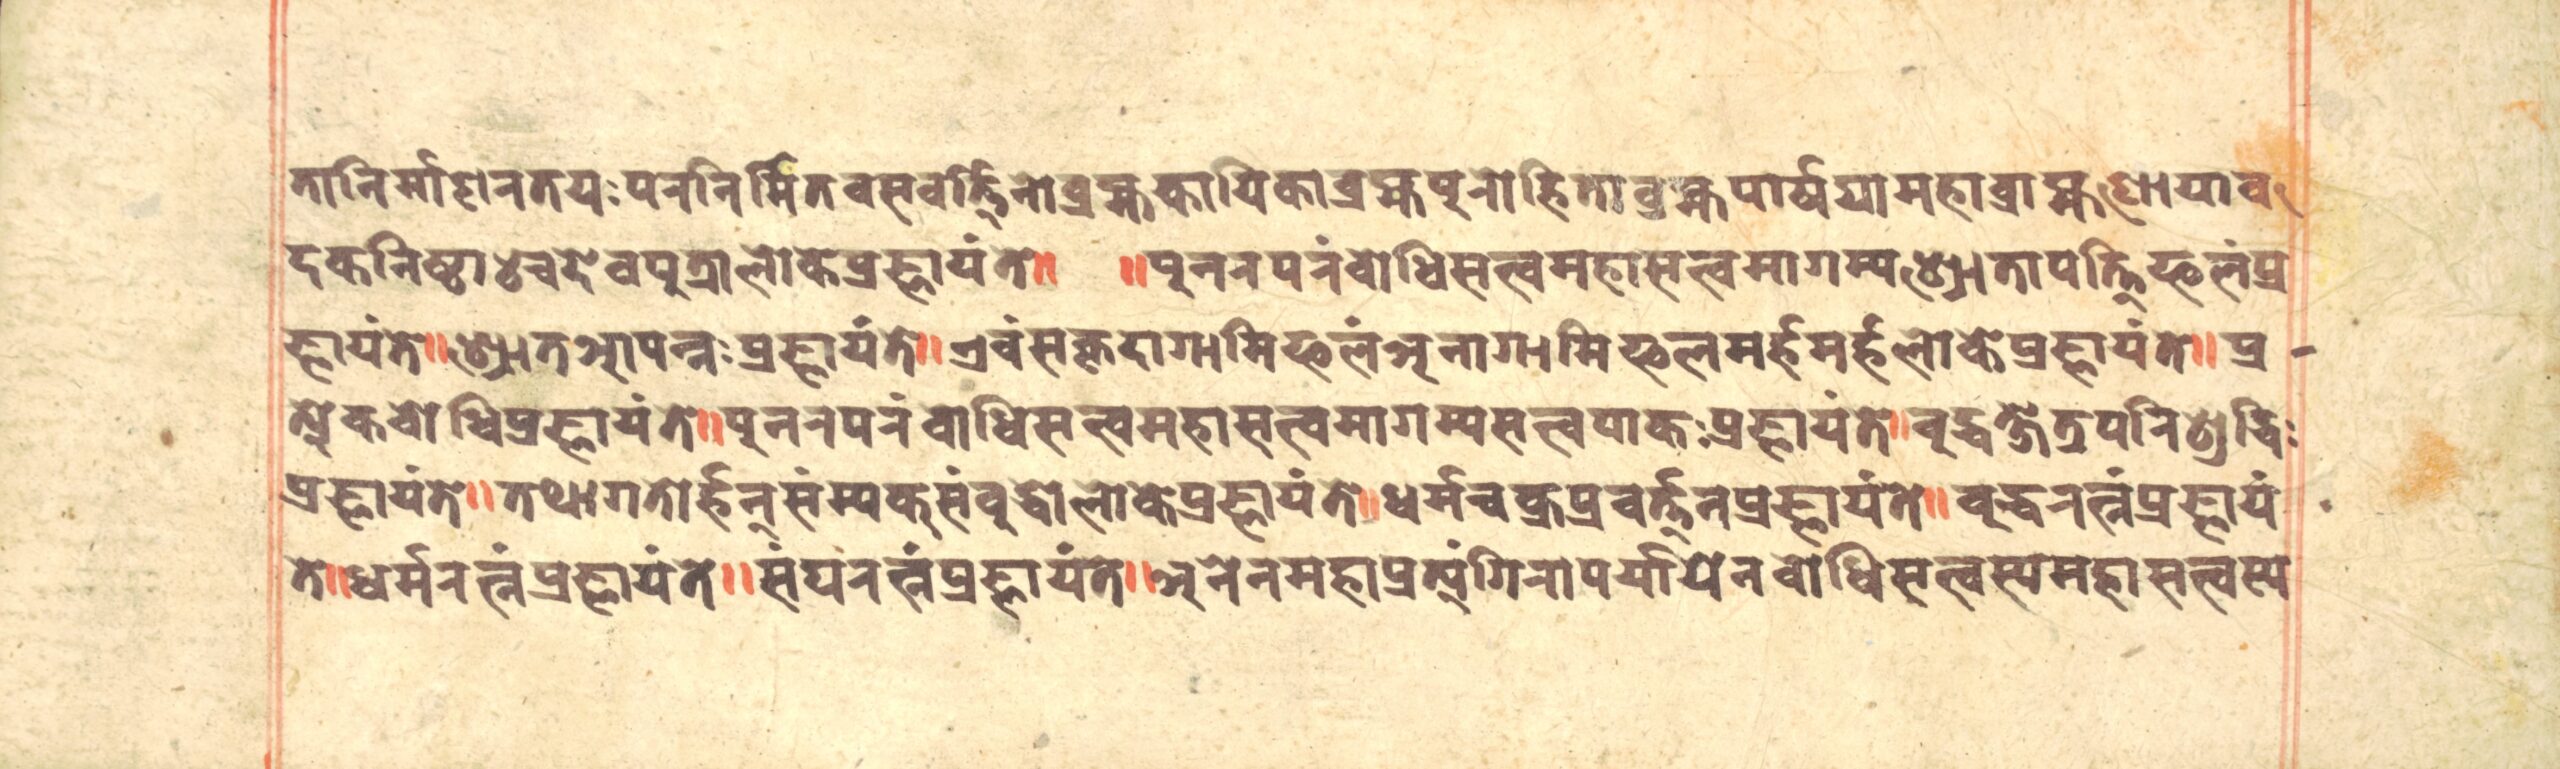 तानिर्माशनतयःपननिर्मितवसवर्त्तिनोब्रह्मकायिकाब्रह्मपुनोहिताब्रह्मपार्षयामहाब्राह्मणोयाव
दकनिष्ठाश्चदेवपुत्रालोकेप्रज्ञायंते॥ ॥पुननपनंबोधिसत्त्वमहासत्त्वमागम्यश्रोतापत्तिफलंप्र
ज्ञायंते॥श्रोतआपन्नःप्रज्ञायंते॥एवंसकृदागामिफलंअनागामिफलमर्हमर्हलोकेप्रज्ञायंते॥प्र
त्येकबोधिप्रज्ञायंते॥पुननपनंबोधिसत्त्वमहासत्त्वमागम्यसत्त्वपाकःप्रज्ञायंते॥बुद्धक्षेत्रपनिशुद्धिः
प्रज्ञायंते॥तथागतोर्हन्संम्यक्संबुद्धोलोकेप्रज्ञायंते॥धर्मचक्रप्रवर्त्तनप्रज्ञायंते॥बुद्धनत्नंप्रज्ञायं
ते॥धर्मनत्नंप्रज्ञायंते॥संघनत्नंप्रज्ञायंते॥अनेनमहाप्रत्यंगिनापर्यायेनबोधिसत्त्वस्यमहासत्त्वस्य